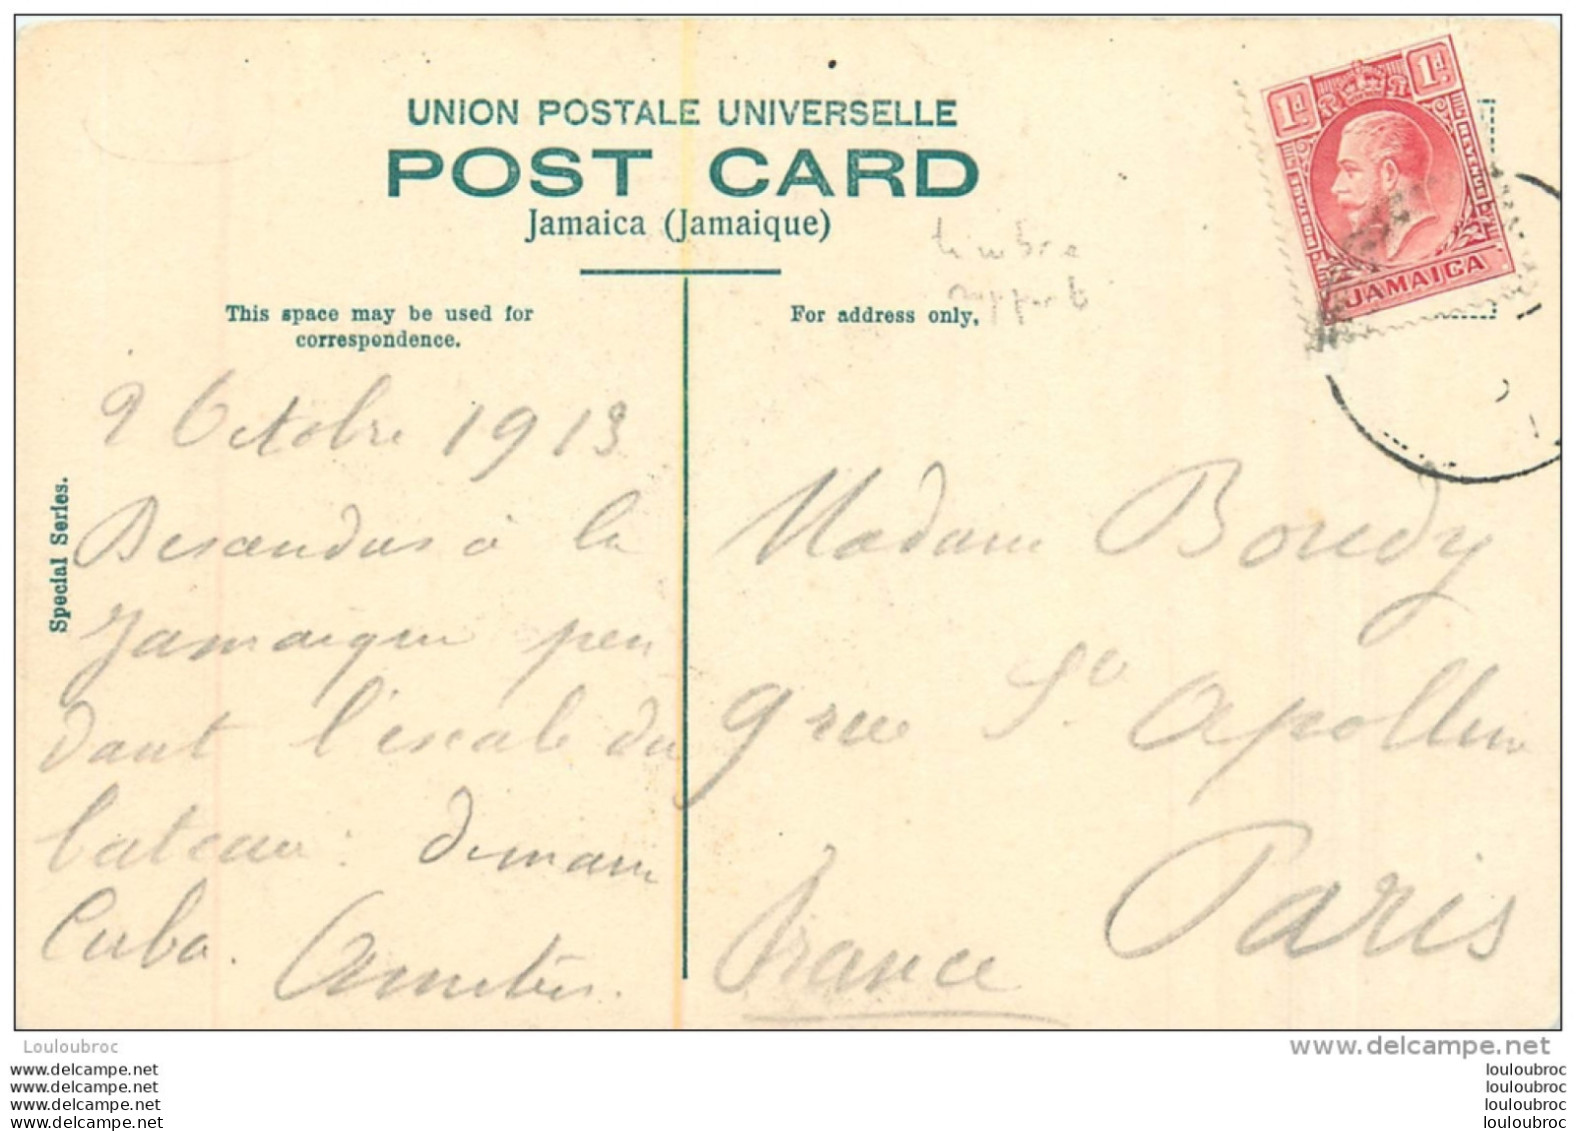 UNION POSTALE UNIVERSELLE
POST CARD
Jamaica (Jamaique)
timbre
rapporté
1d 1d
POSTAGE REVENUE
JAMAICA
This space may be used for
correspondence.
For address only,
Special Series.
9 Octobre 1913
Descendus à la
Jamaique pen
dant l'escale du
bateau : demain
Cuba. Amitiés.
Madame Bouedy
9 rue Ste Apolline
Paris
France
Louloubroc
www.delcampe.net
www.delcampe.net
www.delcampe.net
www.delcampe.net
www.delcampe.net
louloubroc
louloubroc
louloubroc
louloubroc